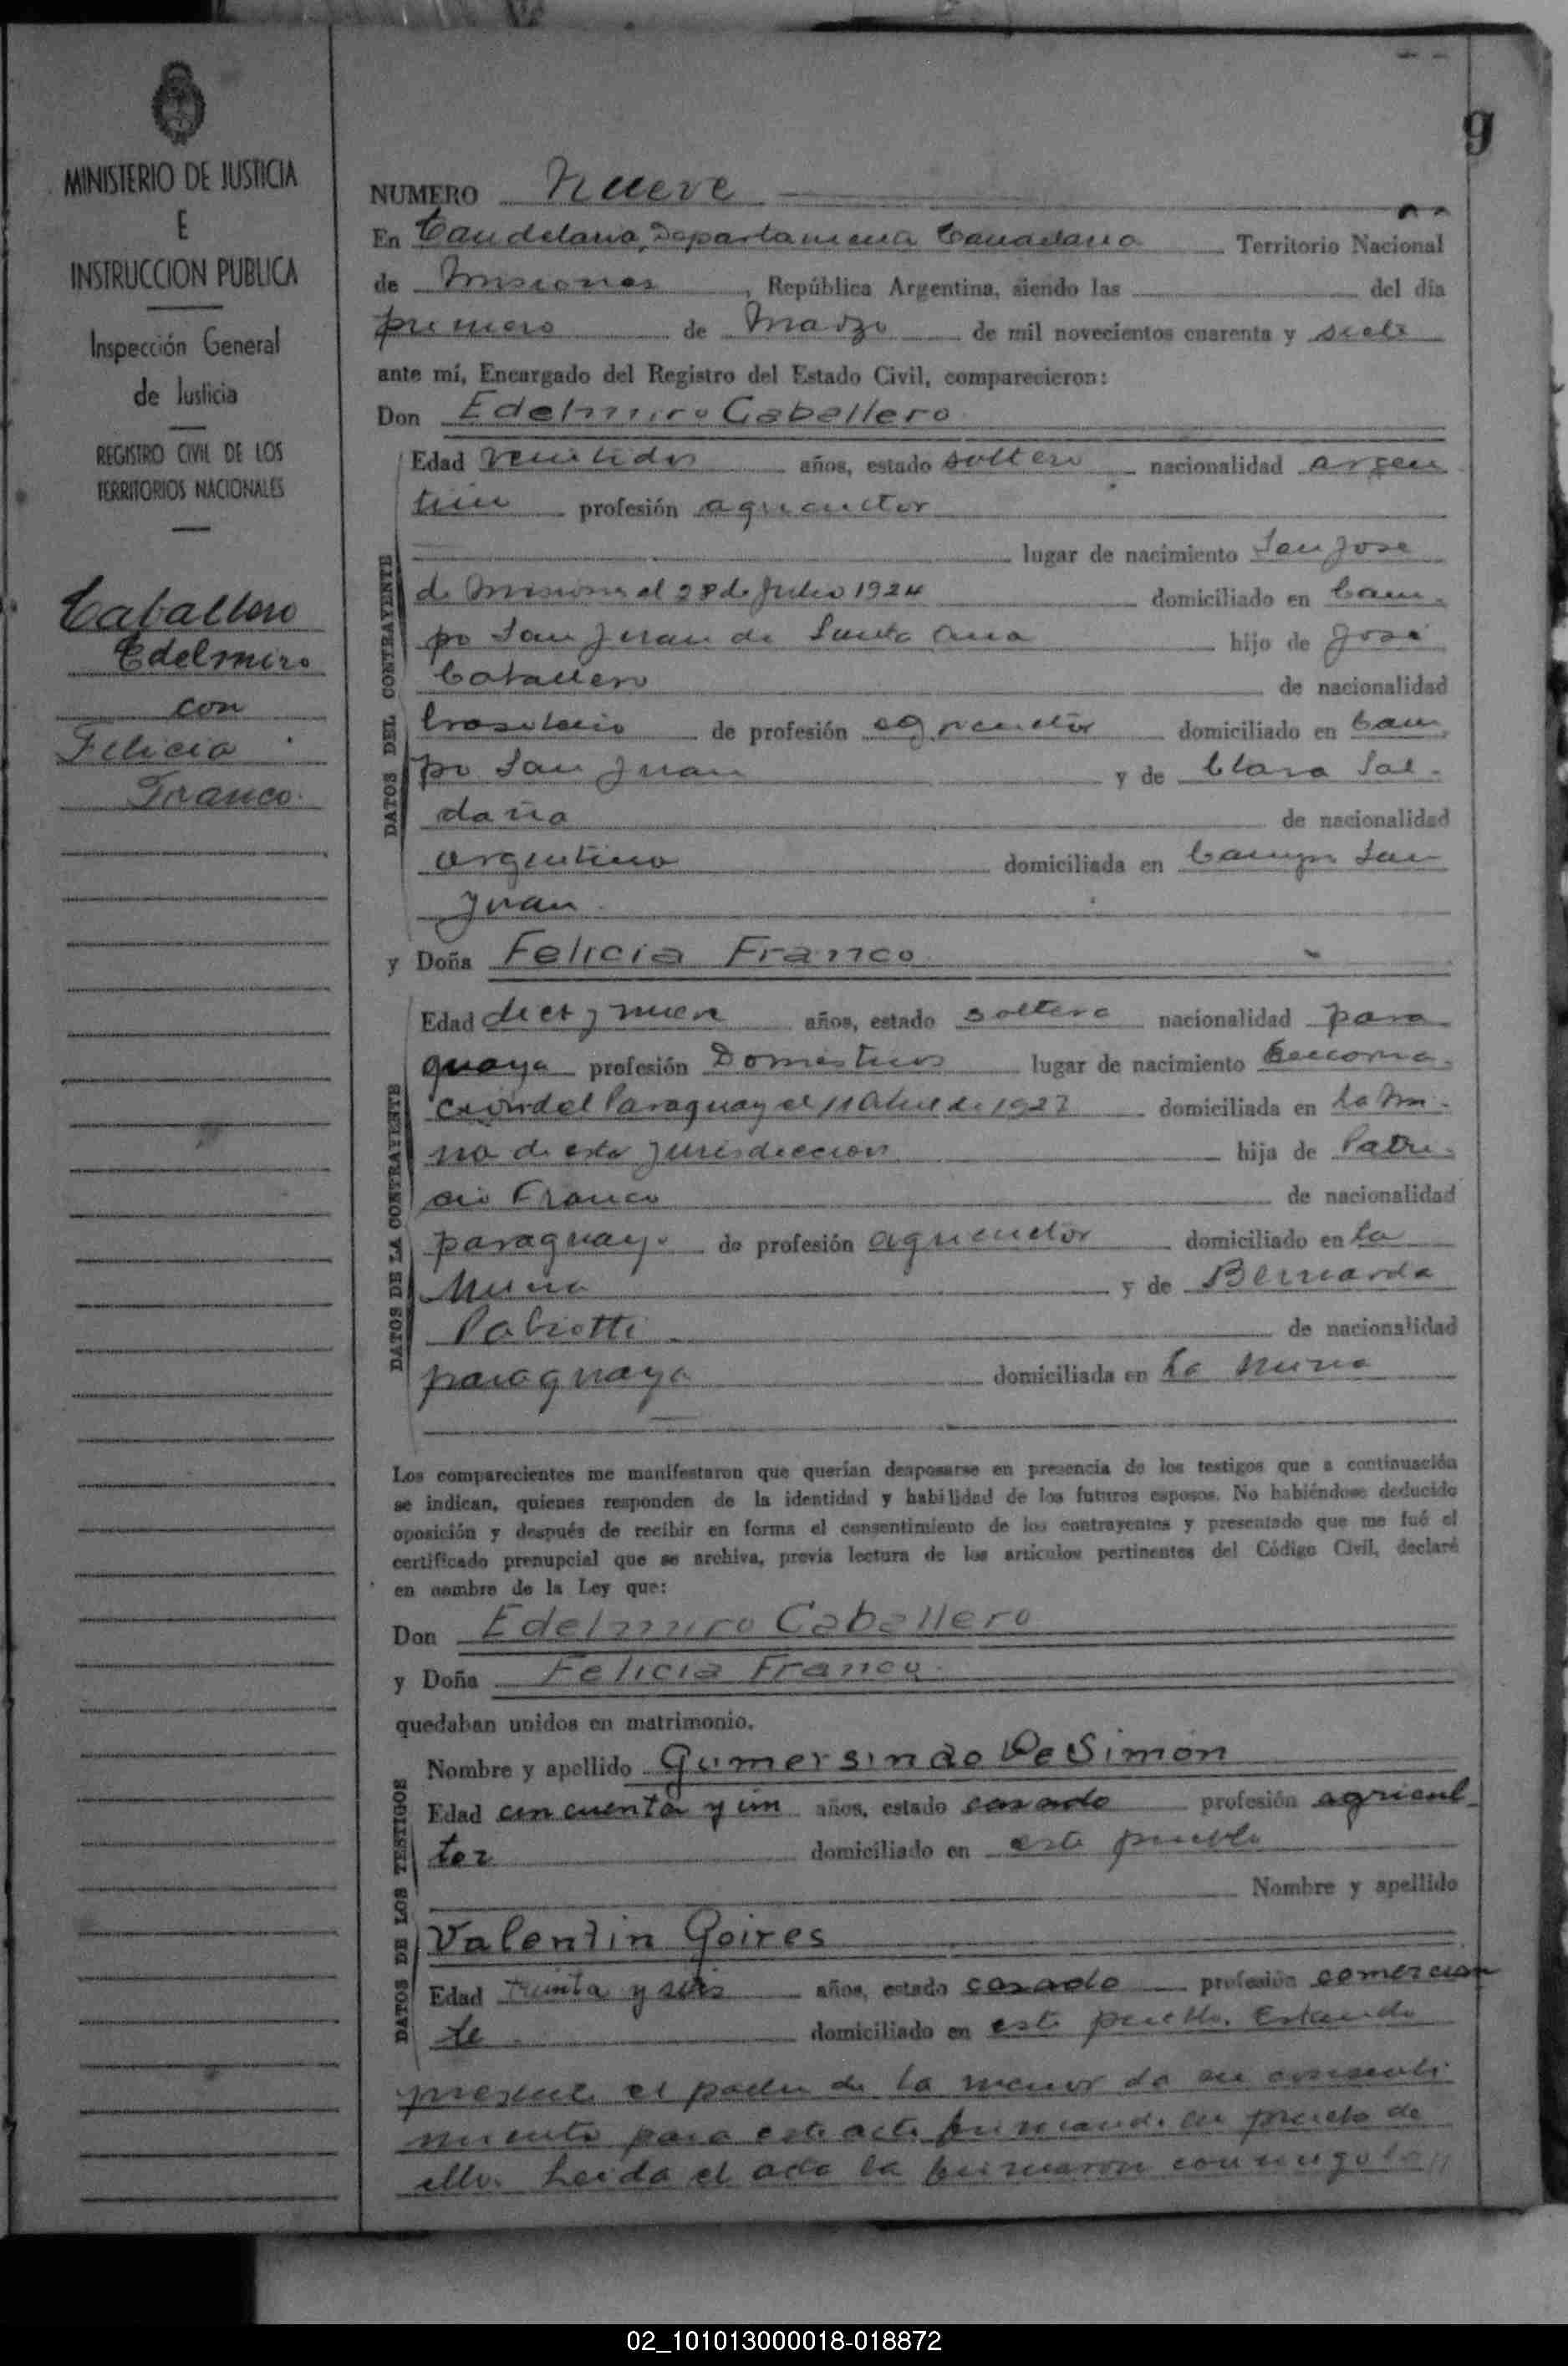 9
MINISTERIO DE JUSTICIA
E
INSTRUCCION PUBLICA
Inspección General
de Justicia
REGISTRO CIVIL DE LOS
TERRITORIOS NACIONALES
Caballero
Edelmiro
con
Felicia
Franco
NUMERO Nueve
En Candelaria, Departamento Candelaria Territorio Nacional
de Misiones, República Argentina, siendo las del día
primero de Marzo de mil novecientos cuarenta y siete
ante mí, Encargado del Registro del Estado Civil, comparecieron:
Don Edelmiro Caballero
DATOS DEL CONTRAYENTE
Edad veintidos años, estado soltero nacionalidad argen
tino profesión agricultor
lugar de nacimiento San José
de Misiones el 28 de Julio 1924 domiciliado en Cam-
po San Juan de Santa Ana hijo de José
Caballero de nacionalidad
brasilero de profesión agricultor domiciliado en Cam
po San Juan y de Clara Sal-
daña de nacionalidad
argentina domiciliada en Campo San
Juan
y Doña Felicia Franco
DATOS DE LA CONTRAYENTE
Edad diez y nueve años, estado soltera nacionalidad para
guaya profesión Domesticos lugar de nacimiento Encarna-
ción del Paraguay el 11 Abril de 1927 domiciliada en La Mi-
na de esta jurisdiccion hija de Patri-
cio Franco de nacionalidad
paraguayo de profesión agricultor domiciliado en La
Mina y de Bernarda
de nacionalidad
paraguaya domiciliada en La Mina
Los comparecientes me manifestaron que querían desposarse en presencia de los testigos que a continuación
se indican, quienes responden de la identidad y habilidad de los futuros esposos. No habiéndose deducido
oposición y después de recibir en forma el consentimiento de los contrayentes y presentado que me fué el
certificado prenupcial que se archiva, previa lectura de los artículos pertinentes del Código Civil, declaré
en nombre de la Ley que:
Don Edelmiro Caballero
y Doña Felicia Franco
quedaban unidos en matrimonio.
DATOS DE LOS TESTIGOS
Nombre y apellido Gumersindo De Simón
Edad cincuenta y un años, estado casado profesión agricul-
tor domiciliado en este pueblo
Nombre y apellido
Valentin Goires
Edad treinta y seis años, estado casado profesión comercian
te domiciliado en este pueblo. Estando
presente el padre de la menor da su consenti
miento para este acto firmando en prueba de
ello. Leida el acta la firmaron conmigo los
02_101013000018-018872